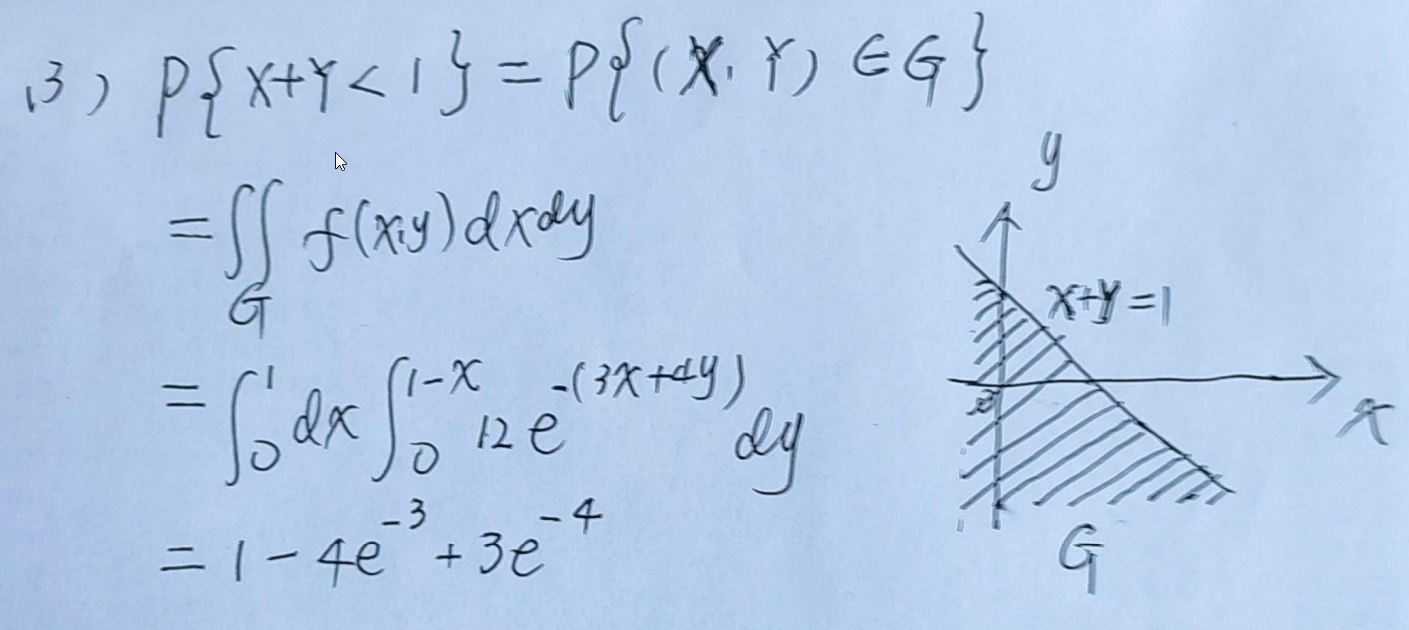 (3) P{X+Y<1}=P{(X,Y)∈G}
=∬_G f(x,y)dxdy
=∫_0^1 dx ∫_0^{1-x} 12e^{-(3x+4y)} dy
=1-4e^{-3}+3e^{-4}
y
x+y=1
x
G